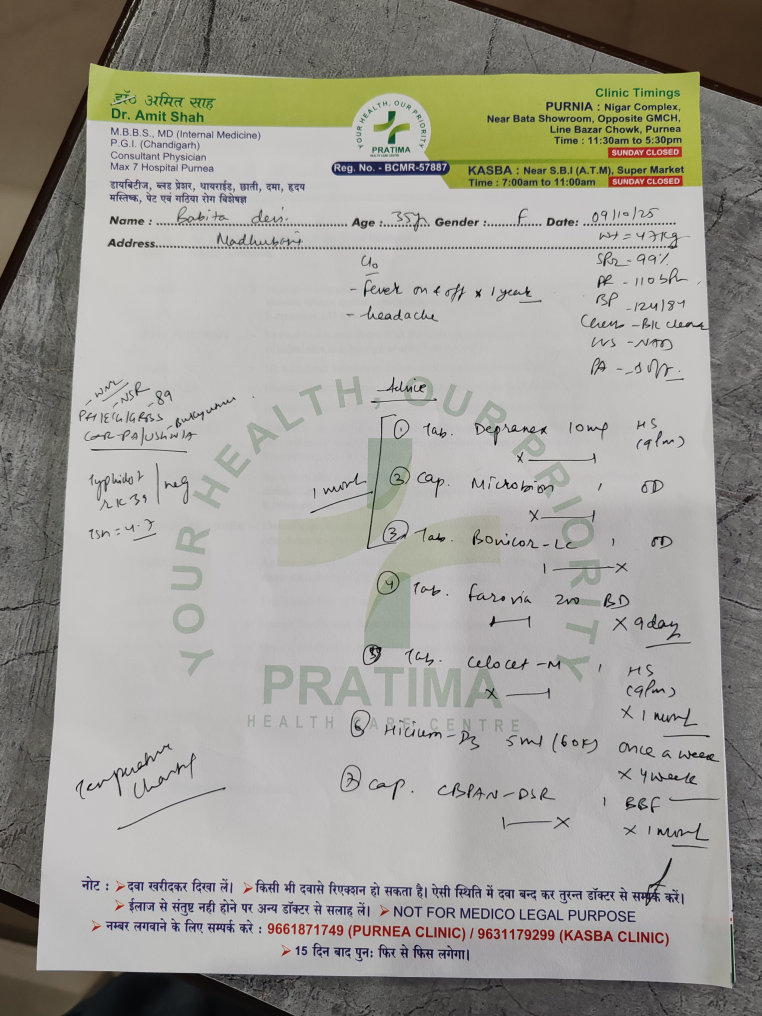 डॉ० अमित साह
Dr. Amit Shah
M.B.B.S., MD (Internal Medicine)
P.G.I. (Chandigarh)
Consultant Physician
Max 7 Hospital Purnea
डायबिटीज, ब्लड प्रेशर, थायराईड, छाती, दमा, हृदय
मस्तिष्क, पेट एवं गठिया रोग विशेषज्ञ
YOUR HEALTH, OUR PRIORITY
PRATIMA
HEALTH CARE CENTRE
Reg. No. - BCMR-57887
Clinic Timings
PURNIA : Nigar Complex,
Near Bata Showroom, Opposite GMCH,
Line Bazar Chowk, Purnea
Time : 11:30am to 5:30pm
SUNDAY CLOSED
KASBA : Near S.B.I (A.T.M), Super Market
Time : 7:00am to 11:00am SUNDAY CLOSED
Name : Babita devi Age : 35y Gender : F Date: 09/10/25
Address Madhubani
Wt = 47kg
SPO2 - 99%
PR - 110 bpm
BP - 124/84
Chest - B/L clear
PA - soft
C/o
- Fever on & off x 1 year
- headache
- NSR - 89
Typhidot
RK39 neg
TSH = 4.7
Advice
1 month
① Tab. Depranex 10mg HS
(9pm)
x—ı
② Cap. Microbion 1 OD
x—ı
③ Tab. Bonicor-LC 1 OD
ı—x
④ Tab. Farovia 200 BD
ı—ı x 9 day
⑤ Tab. Celocet-M 1 HS
(9pm)
x—ı
x 1 month
⑥ Hicium-D3 5ml (60K) once a week
x 4 week
⑦ Cap. CBPAN-DSR 1 BBF
ı—x
x 1 month
Temperature
Charting
YOUR HEALTH, OUR PRIORITY
PRATIMA
HEALTH CARE CENTRE
नोट : ➤ दवा खरीदकर दिखा लें। ➤ किसी भी दवासे रिएक्शन हो सकता है। ऐसी स्थिति में दवा बन्द कर तुरन्त डॉक्टर से सम्पर्क करें।
➤ ईलाज से संतुष्ट नही होने पर अन्य डॉक्टर से सलाह लें। ➤ NOT FOR MEDICO LEGAL PURPOSE
➤ नम्बर लगवाने के लिए सम्पर्क करे : 9661871749 (PURNEA CLINIC) / 9631179299 (KASBA CLINIC)
➤ 15 दिन बाद पुनः फिर से फिस लगेगा।